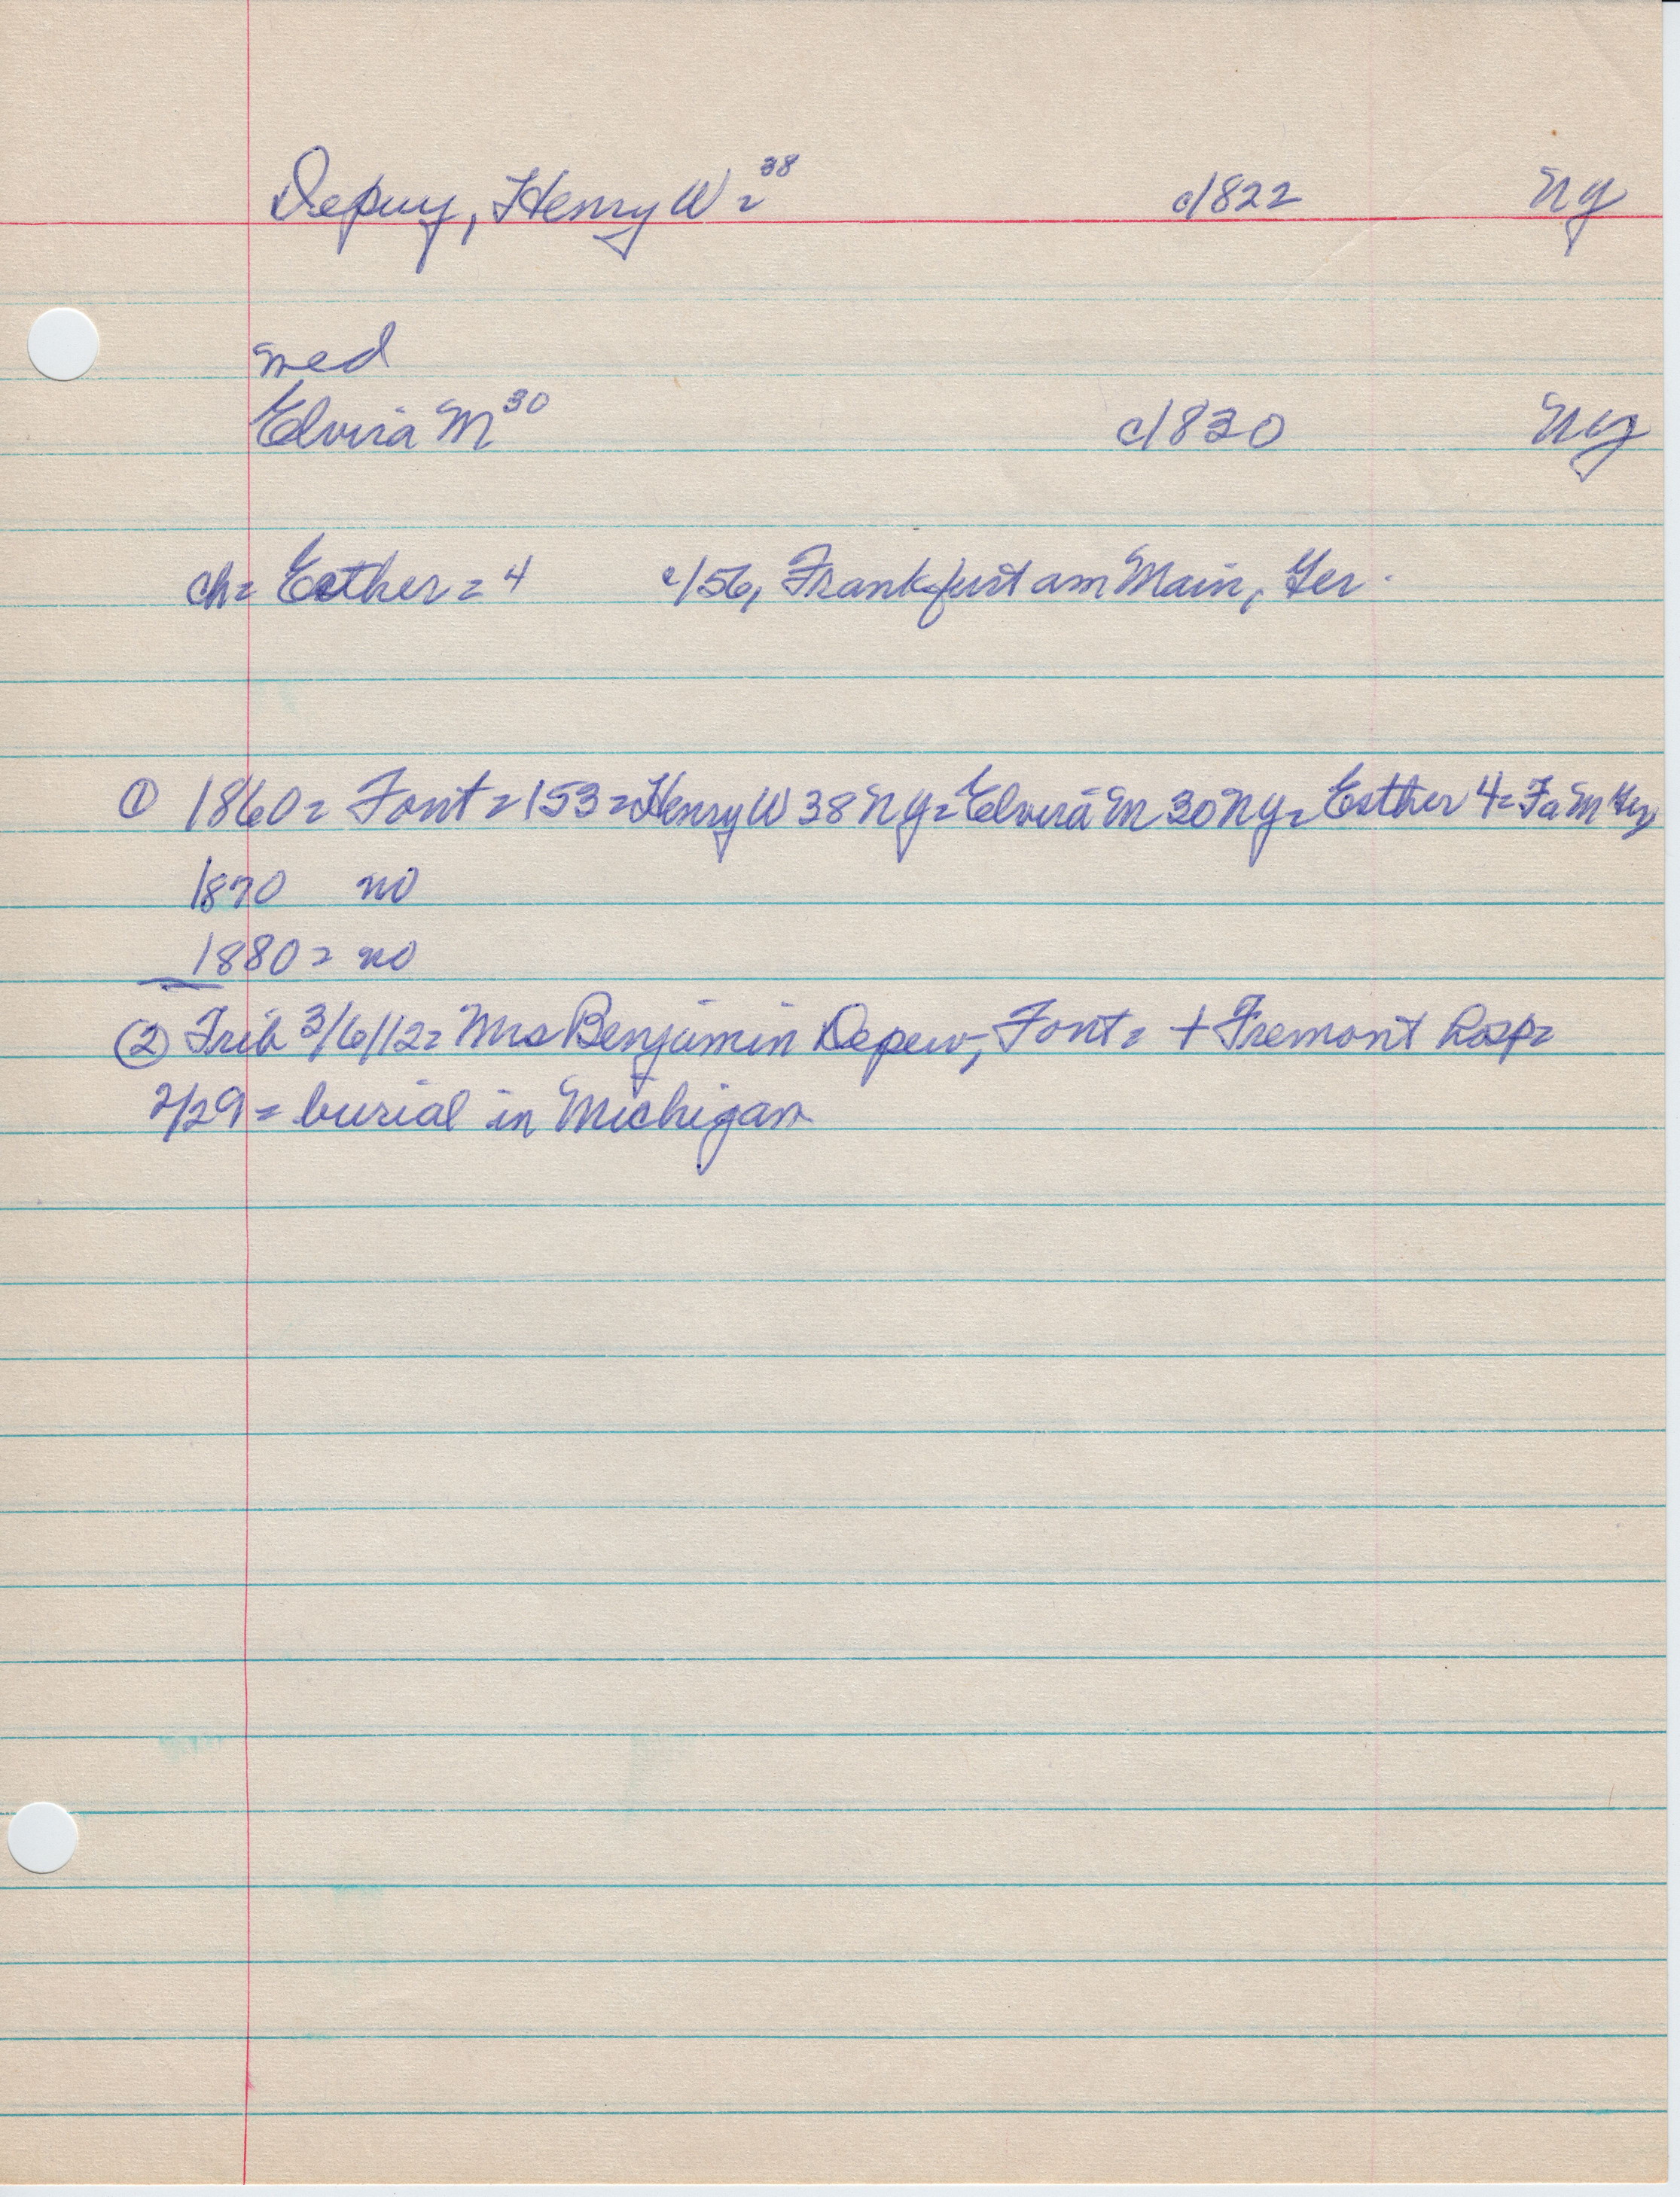 Depuy, Henry W = 38 c/1822 NY
med
Elvira M 30 c/1830 NY
ch = Esther = 4 c/56, Frankfurt am Main, Ger.
① 1860 = Font = 153 = Henry W 38 NY = Elvira M 30 NY = Esther 4 = FaM Ger
1870 no
1880 = no
② Trib 3/6/12 = Mrs Benjamin Depew, Font = + Fremont Hosp =
2/29 = burial in Michigan